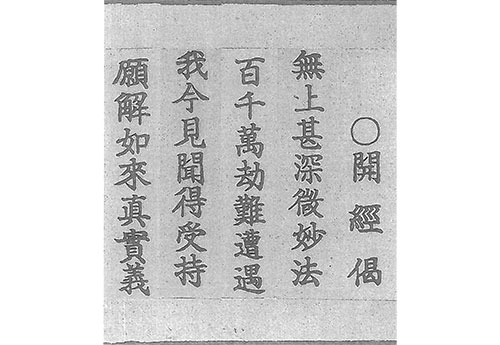 ○開經偈
無上甚深微妙法
百千萬劫難遭遇
我今見聞得受持
願解如來真實義